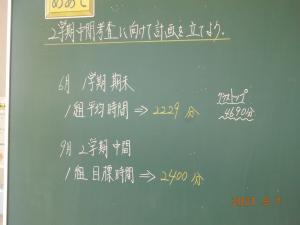 めあて
2学期中間考査に向けて計画を立てよう.
6月 1学期 期末
1組 平均時間 ⇒ 2229分
クラストップ
4690分
9月 2学期 中間
1組 目標時間 ⇒ 2400分